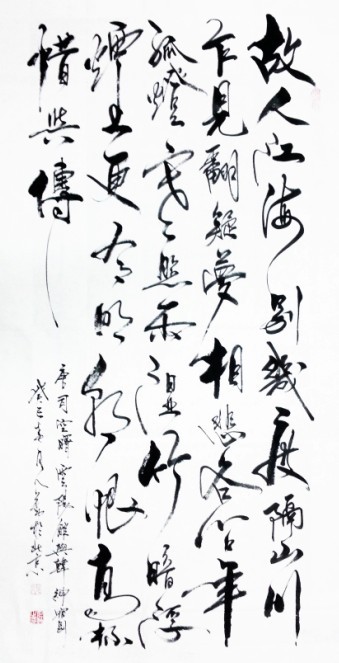 故人江海别幾度隔山川
乍見翻疑夢相悲各问年
孤燈寒照雨湿竹暗浮
煙更有明朝恨离杯
惜共傳
唐司空曙雲陽館與韓紳宿别
癸巳春月於北京